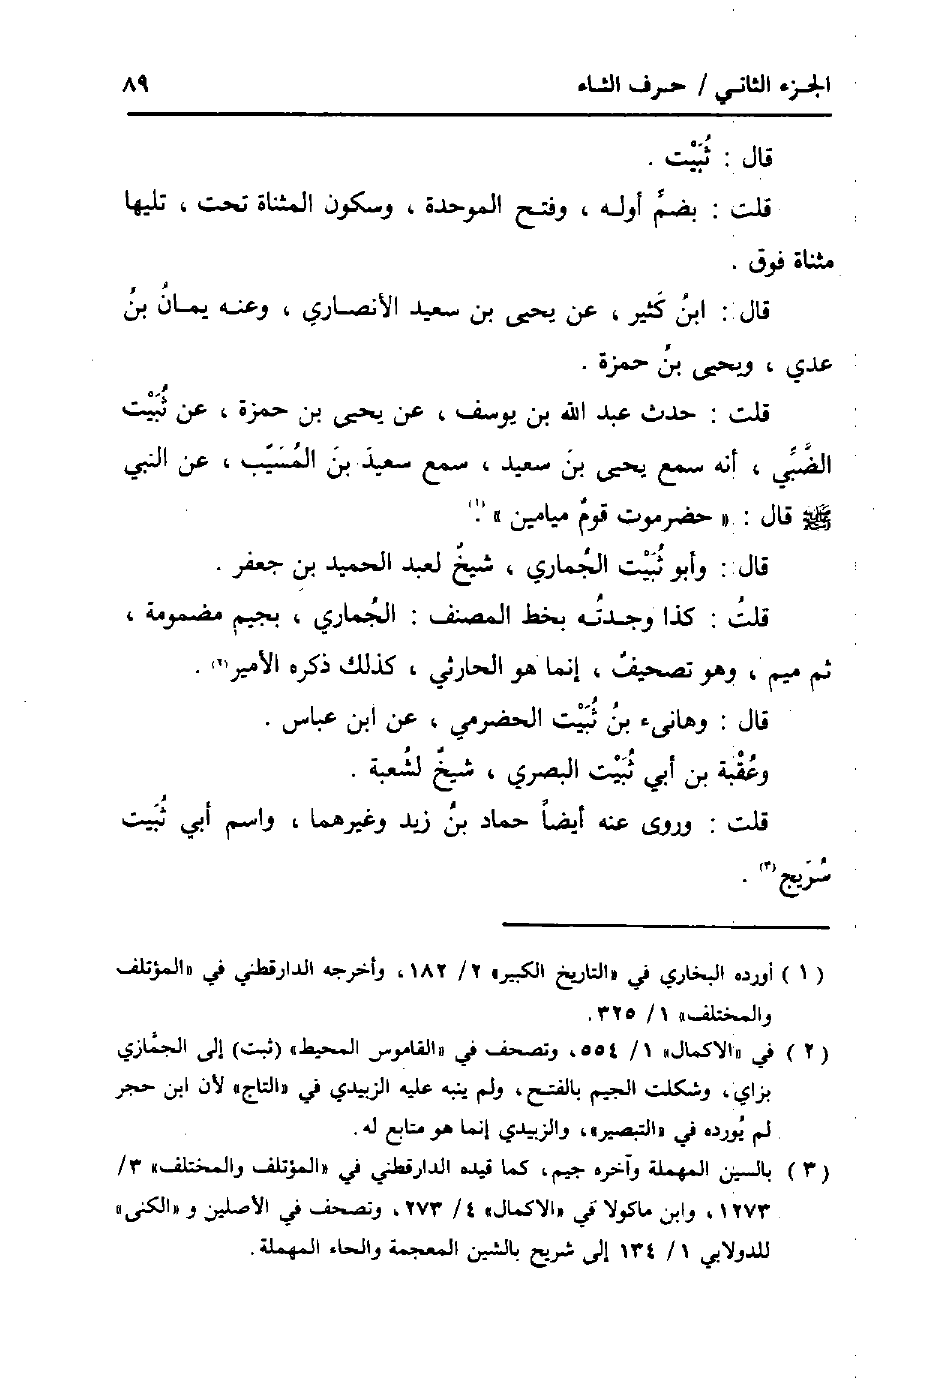 الجزء الثاني / حرف الثاء ٨٩
قال : ثُبَيْت .
قلت : بضمِّ أوله ، وفتح الموحدة ، وسكون المثناة تحت ، تليها
مثناة فوق .
قال : ابنُ كَثير ، عن يحيى بن سعيد الأنصاري ، وعنه يمانُ بنُ
عدي ، ويحيى بنُ حمزة .
قلت : حدث عبد الله بن يوسف ، عن يحيى بن حمزة ، عن ثُبَيْت
الضَّبِّي ، أنه سمع يحيى بنَ سعيد ، سمع سعيدَ بنَ المُسَيّب ، عن النبي
ﷺ قال : « حضرموت قومٌ ميامين »(١).
قال : وأبو ثُبَيْت الجُماري ، شيخٌ لعبد الحميد بن جعفر .
قلتُ : كذا وجدتُه بخط المصنف : الجُماري ، بجيم مضمومة ،
ثم ميم ، وهو تصحيفٌ ، إنما هو الحارثي ، كذلك ذكره الأمير(٢) .
قال : وهانىء بنُ ثُبَيْت الحضرمي ، عن ابن عباس .
وعُقْبة بن أبي ثُبَيْت البصري ، شيخٌ لشُعبة .
قلت : وروى عنه أيضاً حماد بنُ زيد وغيرهما ، واسم أبي ثُبَيت
سُرَيج(٣) .
( ١ ) أورده البخاري في «التاريخ الكبير» ٢/ ١٨٢، وأخرجه الدارقطني في «المؤتلف
والمختلف» ١/ ٣٢٥.
( ٢ ) في «الاكمال» ١/ ٥٥٤، وتصحف في «القاموس المحيط» (ثبت) إلى الجمَّازي
بزاي، وشكلت الجيم بالفتح، ولم ينبه عليه الزبيدي في «التاج» لأن ابن حجر
لم يُورده في «التبصير»، والزبيدي إنما هو متابع له.
( ٣ ) بالسين المهملة وآخره جيم، كما قيده الدارقطني في «المؤتلف والمختلف» ٣/
١٢٧٣، وابن ماكولا في «الاكمال» ٤/ ٢٧٣، وتصحف في الأصلين و «الكنى»
للدولابي ١/ ١٣٤ إلى شريح بالشين المعجمة والحاء المهملة.